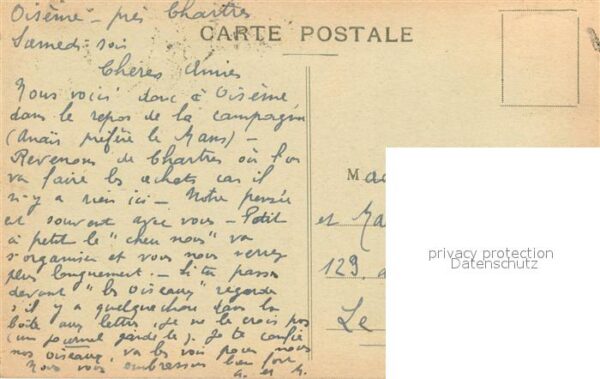 Oisème - près Chartres
Samedi soir
CARTE POSTALE
Chères Amies
Nous voici donc à Oisème
dans le repos de la campagne
(Anaïs préfère le Mans) -
Revenons de Chartres où l'on
va faire les achats car il
n'y a rien ici - Notre pensée
est souvent avec vous - Petit
à petit le "chez nous" va
s'organiser et vous nous verrez
plus longuement. - Si tu passes
devant "les Oiseaux" regarde
s'il y a quelque chose dans la
boîte aux lettres, je ne le crois pas
(un journal garde le). Je te confie
nos oiseaux, va les voir pour nous
Nous vous embrassons bien fort
A. et M.
Ma
et Ma
123,
Le
privacy protection
Datenschutz